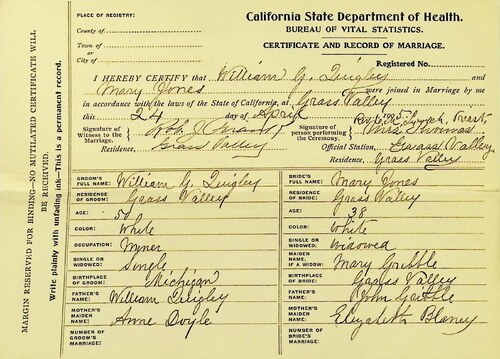 California State Department of Health.
BUREAU OF VITAL STATISTICS.
CERTIFICATE AND RECORD OF MARRIAGE.
PLACE OF REGISTRY:
County of
Town of
or
City of
Registered No.
I HEREBY CERTIFY that William G. Quigley and
Mary Jones were joined in Marriage by me
in accordance with the laws of the State of California, at Grass Valley
this 24 day of April 190
Signature of Witness to the Marriage.
Residence, Grass Valley
Signature of person performing the Ceremony. Thomas
Official Station, Grass Valley
Residence, Grass Valley
GROOM'S FULL NAME: William G. Quigley
RESIDENCE OF GROOM: Grass Valley
AGE:
COLOR: White
OCCUPATION: Myner
SINGLE OR WIDOWED: Single
BIRTHPLACE OF GROOM: Michigan
FATHER'S NAME: William Quigley
MOTHER'S MAIDEN NAME: Anne Doyle
NUMBER OF GROOM'S MARRIAGE:
BRIDE'S FULL NAME: Mary Jones
RESIDENCE OF BRIDE: Grass Valley
AGE: 38
COLOR: White
SINGLE OR WIDOWED: Widowed
MAIDEN NAME, IF A WIDOW: Mary Gribble
BIRTHPLACE OF BRIDE: Grass Valley
FATHER'S NAME: John Gribble
MOTHER'S MAIDEN NAME: Elizabeth Blaney
NUMBER OF BRIDE'S MARRIAGE:
MARGIN RESERVED FOR BINDING—NO MUTILATED CERTIFICATE WILL
BE RECEIVED.
Write plainly with unfading ink—This is a permanent record.